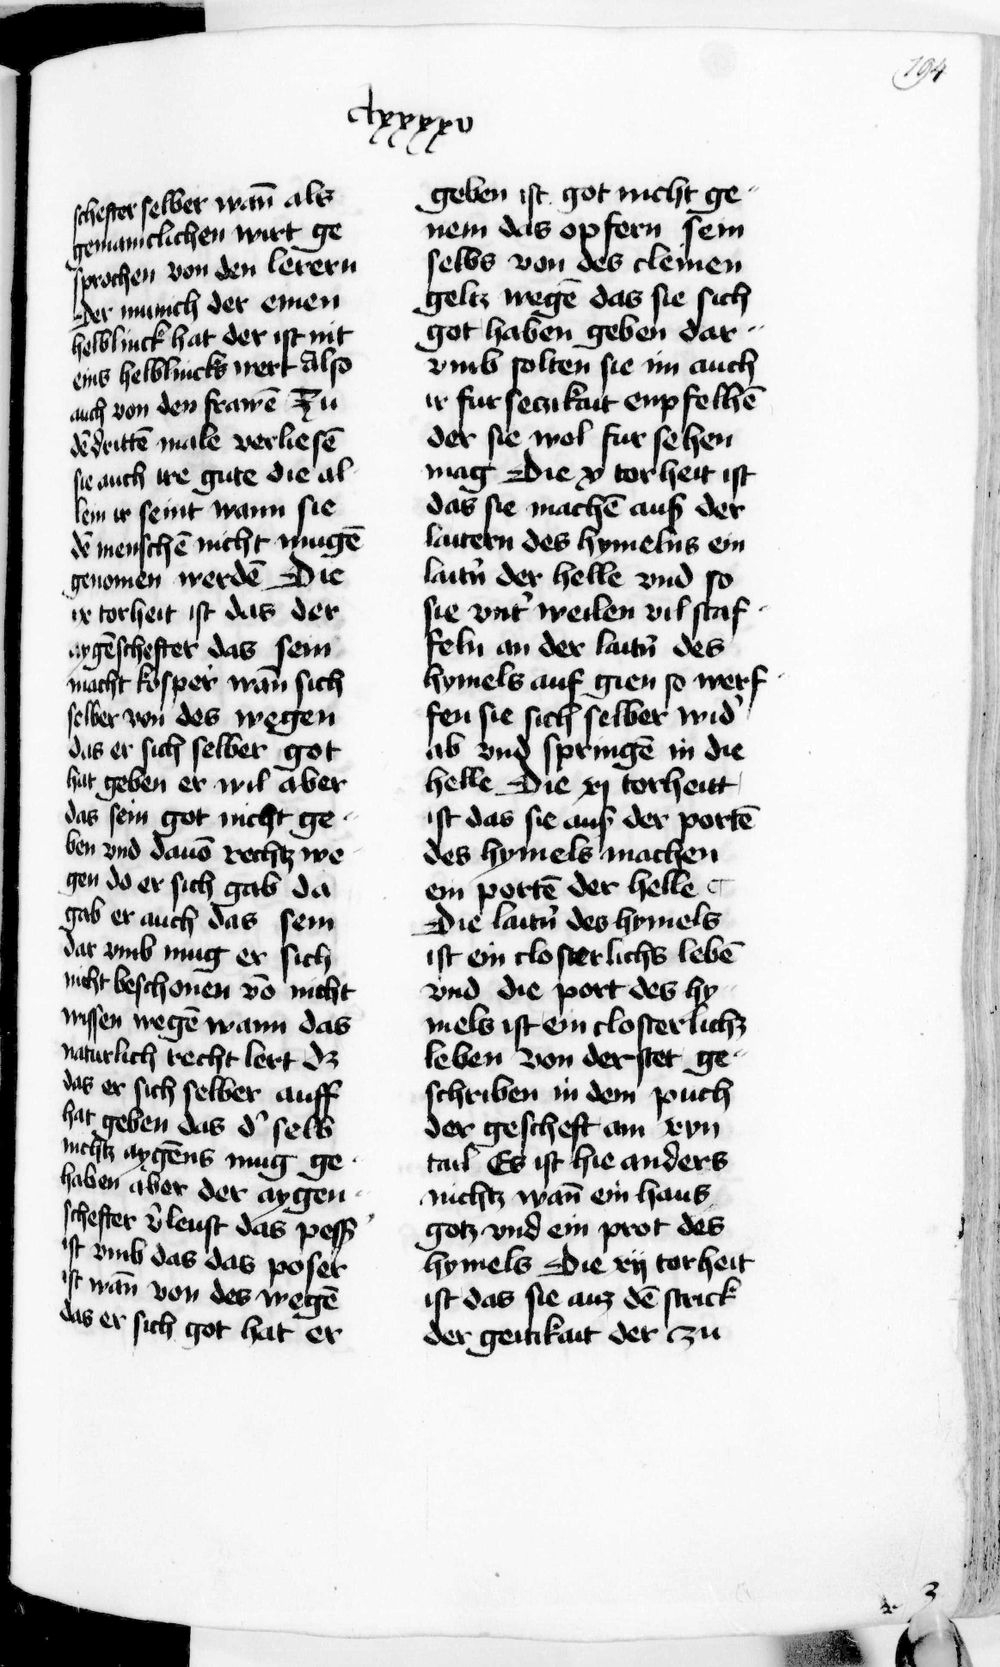 194
clxxxxv
schefter selber wañ als
gemainclichen wirt ge
sprochen von den lerern
Der munch der einen
helblinck hat der ist nit
eins helblincks wert Also
auch von den frawē Zu
dē drittē male verliesē
sie auch ire gute die al
lein ir seint wann sie
dē menschē nicht mugē
genomen werdē Die
ix torheit ist das der
aygēschefter das sein
macht kosper wañ sich
selber von des wegen
das er sich selber got
hat geben er wil aber
das sein got nicht ge-
ben vnd dauō rechtz we-
gen do er sich gab da
gab er auch das sein
dar vmb mug er sich
nicht beschonen vō nicht
wissen wegē wann das
naturlich recht lert dz
das er sich selber auff
hat geben das d' selb
nichtz aygens mug ge-
haben aber der aygen-
schefter v̄leust das pess'
ist vmb das das poser
ist wañ von des wegē
das er sich got hat er
geben ist got nicht ge-
nem das opfern sein
selbs von des cleinen
geltz wegē das sie sich
got haben geben dar-
vmb solten sie im auch
ir fursetzikait enpfelhē
der sie wol fursehen
mag Die x torheit ist
das sie machē auß der
laitern des hymelns ein
laitñ der helle vnd so
sie vnt' weilen vil staf-
feln an der laitñ des
hymels auf gien so werf-
fen sie sich selber wid'
ab vnd springē in die
helle Die xj torheitt
ist das sie auß der portē
des hymels machen
ein portē der helle ¶
Die laitñ des hymels
ist ein closterlichs lebē
vnd die port des hy-
mels ist ein closterlichz
leben von der stet ge-
schriben in dem puch
der gescheft am xvij
tail Es ist hie anders
nichtz wañ ein haus
gotz vnd ein prot des
hymels Die xij torheit
ist das sie auz dē strick
der geitikait der zu
3